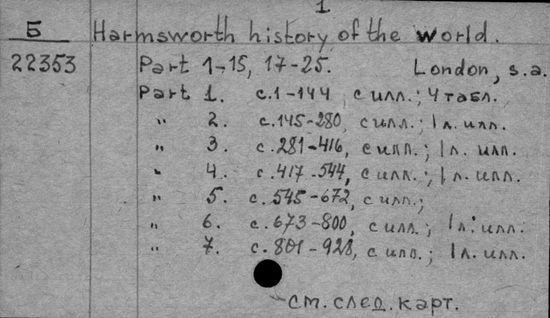 1
Б Harmsworth history of the world.
22353 Part 1-15, 17-25. London, s.a.
Part 1. с.1-144 с илл.; 4 табл.
" 2. с.145-280, с илл.; 1 л. илл.
" 3. с.281-416, с илл.; 1 л. илл.
" 4. с.417-544, с илл.; 1 л. илл.
" 5. с.545-672, с илл.;
" 6. с.673-800, с илл.; 1 л. илл.
" 7. с.801-928, с илл.; 1 л. илл.
см. след. карт.